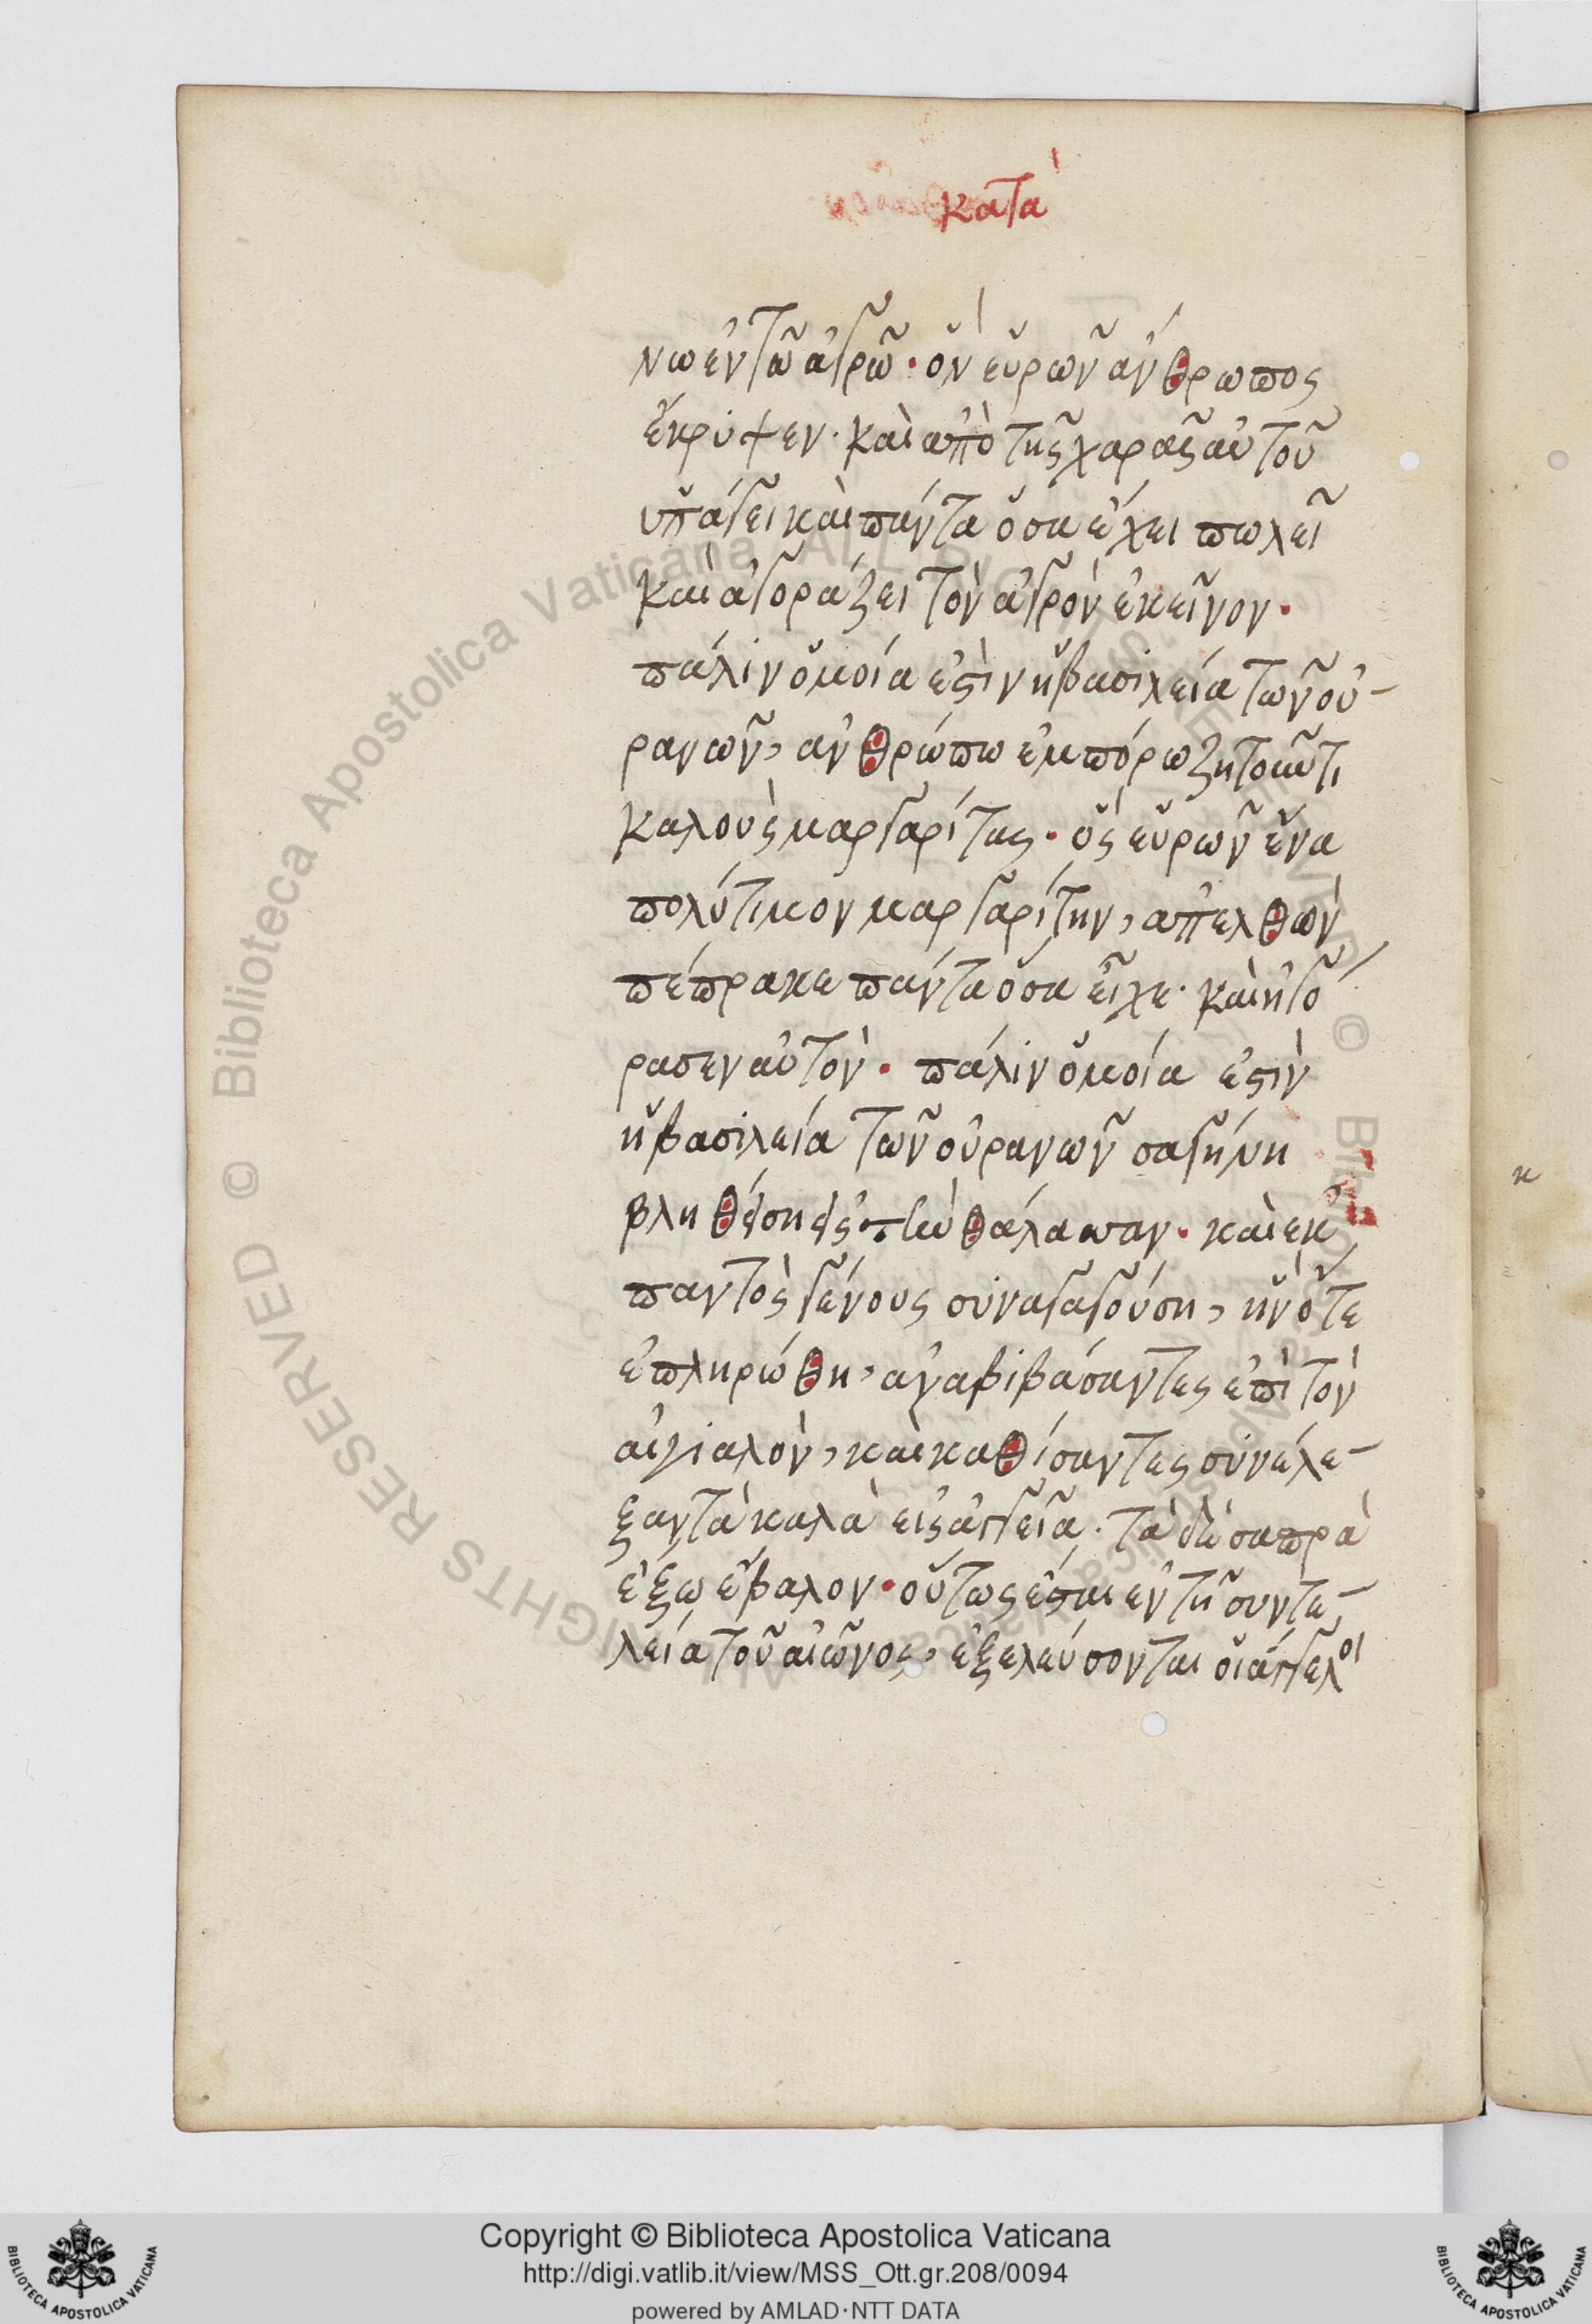 κατὰ
νω ἐν τῶ ἀγρῶ· ὃν εὑρὼν ἄνθρωπος
ἔκρυψεν· καὶ ἀπὸ τῆς χαρᾶς αὐτοῦ
ὑπάγει καὶ πάντα ὅσα ἔχει πωλεῖ
καὶ ἀγοράζει τὸν ἀγρὸν ἐκεῖνον·
πάλιν ὁμοία ἐστὶν ἡ βασιλεία τῶν οὐ-
ρανῶν, ἀνθρώπω ἐμπόρω ζητοῦντι
καλοὺς μαργαρίτας· ὃς εὑρὼν ἕνα
πολύτιμον μαργαρίτην, ἀπελθὼν
πέπρακε πάντα ὅσα εἶχε· καὶ ἠγό
ρασεν αὐτόν· πάλιν ὁμοία ἐστὶν
ἡ βασιλεία τῶν οὐρανῶν σαγήνη
βληθείση εἰς τὴν θάλασσαν· καὶ ἐκ
παντὸς γένους συναγαγούση, ἣν ὅτε
ἐπληρώθη, ἀναβιβάσαντες ἐπὶ τὸν
αἰγιαλὸν, καὶ καθίσαντες συνέλε-
ξαν τὰ καλὰ εἰς ἀγγεῖα· τὰ δὲ σαπρὰ
ἔξω ἔβαλον· οὕτως ἔσται ἐν τῆ συντε-
λεία τοῦ αἰῶνος, ἐξελεύσονται οἱ ἄγγελοι
κ
Copyright © Biblioteca Apostolica Vaticana
http://digi.vatlib.it/view/MSS_Ott.gr.208/0094
powered by AMLAD·NTT DATA
BIBLIOTECA APOSTOLICA VATICANA
BIBLIOTECA APOSTOLICA VATICANA